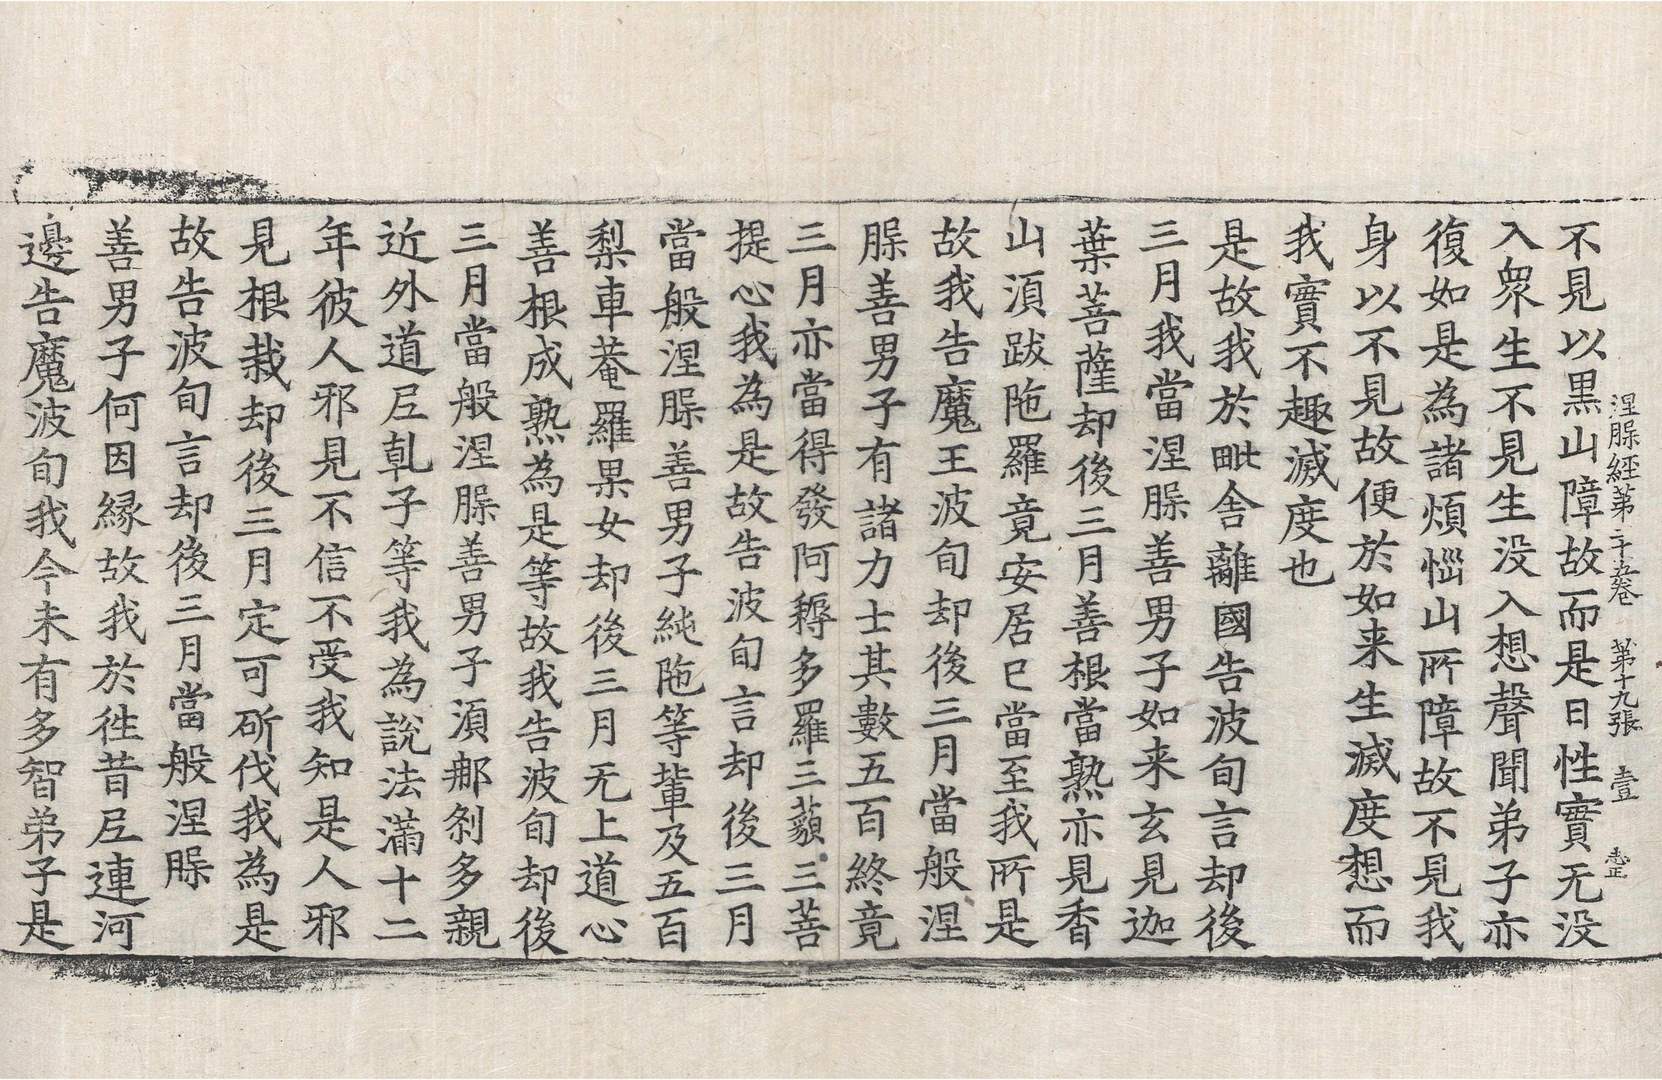 涅槃經第二十五卷 第十九張 壹
不見以黑山障故而是日性實无没
入衆生不見生没入想聲聞弟子亦
復如是為諸煩惱山所障故不見我
身以不見故便於如来生滅度想而
我實不趣滅度也
是故我於毗舍離國告波旬言却後
三月我當涅槃善男子如来玄見迦
葉菩薩却後三月善根當熟亦見香
山湏跋陁羅竟安居已當至我所是
故我告魔王波旬却後三月當般涅
槃善男子有諸力士其數五百終竟
三月亦當得發阿耨多羅三藐三菩
提心我為是故告波旬言却後三月
當般涅槃善男子純陁等輩及五百
梨車菴羅果女却後三月无上道心
善根成熟為是等故我告波旬却後
三月當般涅槃善男子湏那刹多親
近外道尼乹子等我為說法滿十二
年彼人邪見不信不受我知是人邪
見根栽却後三月定可斫伐我為是
故告波旬言却後三月當般涅槃
善男子何因縁故我於徃昔尼連河
邊告魔波旬我今未有多智弟子是